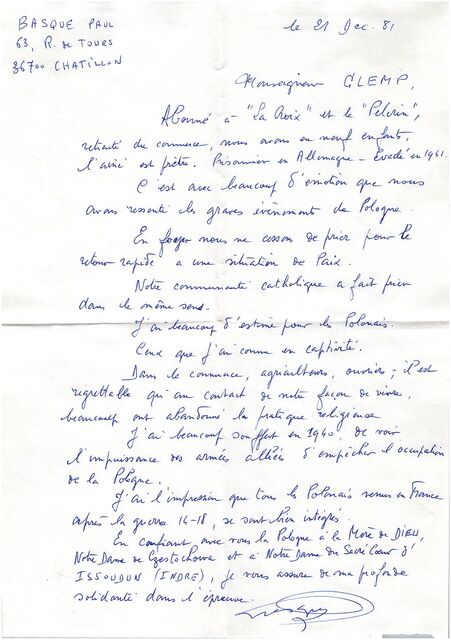 BASQUE PAUL
63, R. de TOURS
36700 CHATILLON
le 21 Dec. 81
Monseigneur GLEMP,
Abonné à "La Croix" et le "Pélerin",
retraité du commerce, nous avons eu neuf enfants,
l'ainé est prêtre. Prisonnier en Allemagne - Evadé en 1941.
C'est avec beaucoup d'émotion que nous
avons ressenti les graves évènements de Pologne.
En foyer nous ne cessons de prier pour le
retour rapide a une situation de Paix.
Notre communauté catholique a fait prier
dans le même sens.
J'ai beaucoup d'estime pour les Polonais.
Ceux que j'ai connu en captivité.
Dans le commerce, agriculteurs, ouvriers ; il est
regrettable qu'au contact de notre façon de vivre,
beaucoup ont abandonné la pratique religieuse
J'ai beaucoup souffert en 1940, de voir
l'impuissance des armées alliées d'empêcher l'occupation
de la Pologne.
J'ai l'impression que tous les Polonais venus en France
après la guerre 14-18, se sont bien intégrés.
En confiant avec vous la Pologne à la Mère de DIEU,
Notre Dame de Czestochowa et à Notre Dame du Sacré Coeur d'
ISSOUDUN (INDRE), je vous assure de ma profonde
solidarité dans l'épreuve.